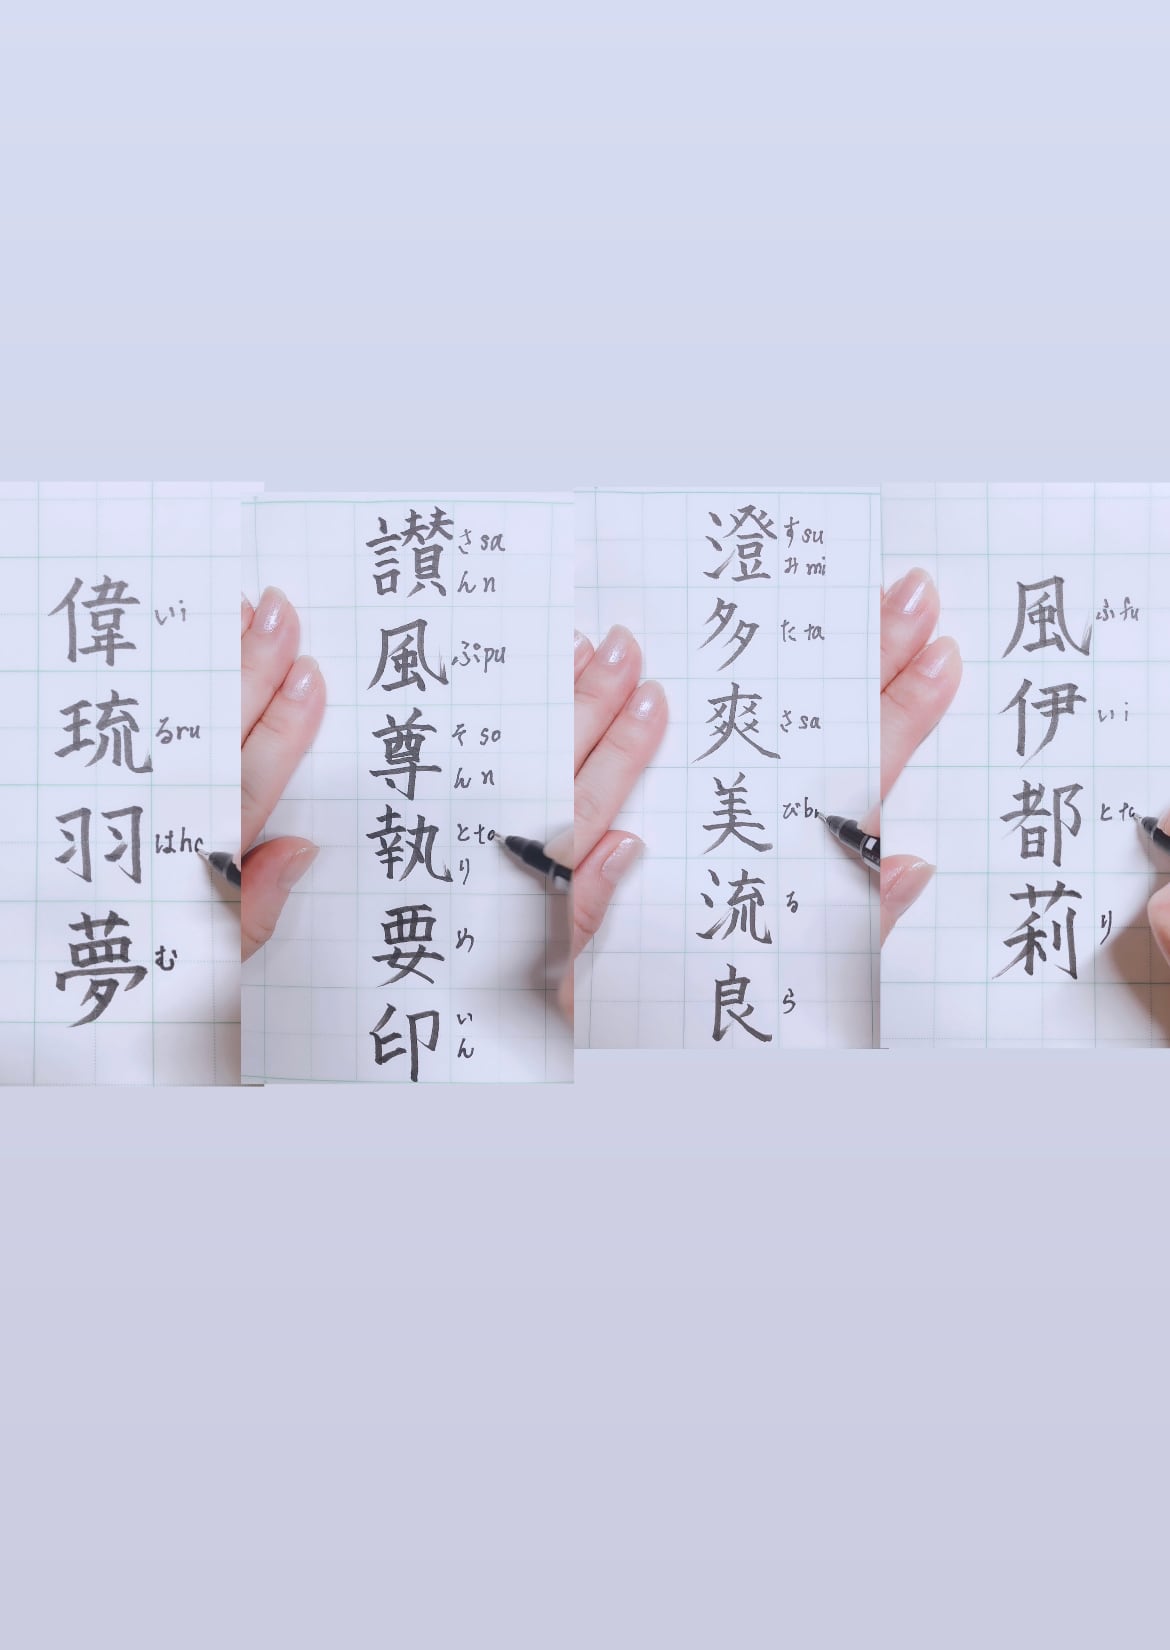 偉 い i
琉 る ru
羽 は
夢 む
讃 さ sa
ん n
風 ぷ pu
尊 そ so
ん n
執 と to
り
要 め
印 い
ん
澄 す su
み mi
多 た ta
爽 さ sa
美 び
流 る
良 ら
風 ふ fu
伊 い i
都 と
莉 り